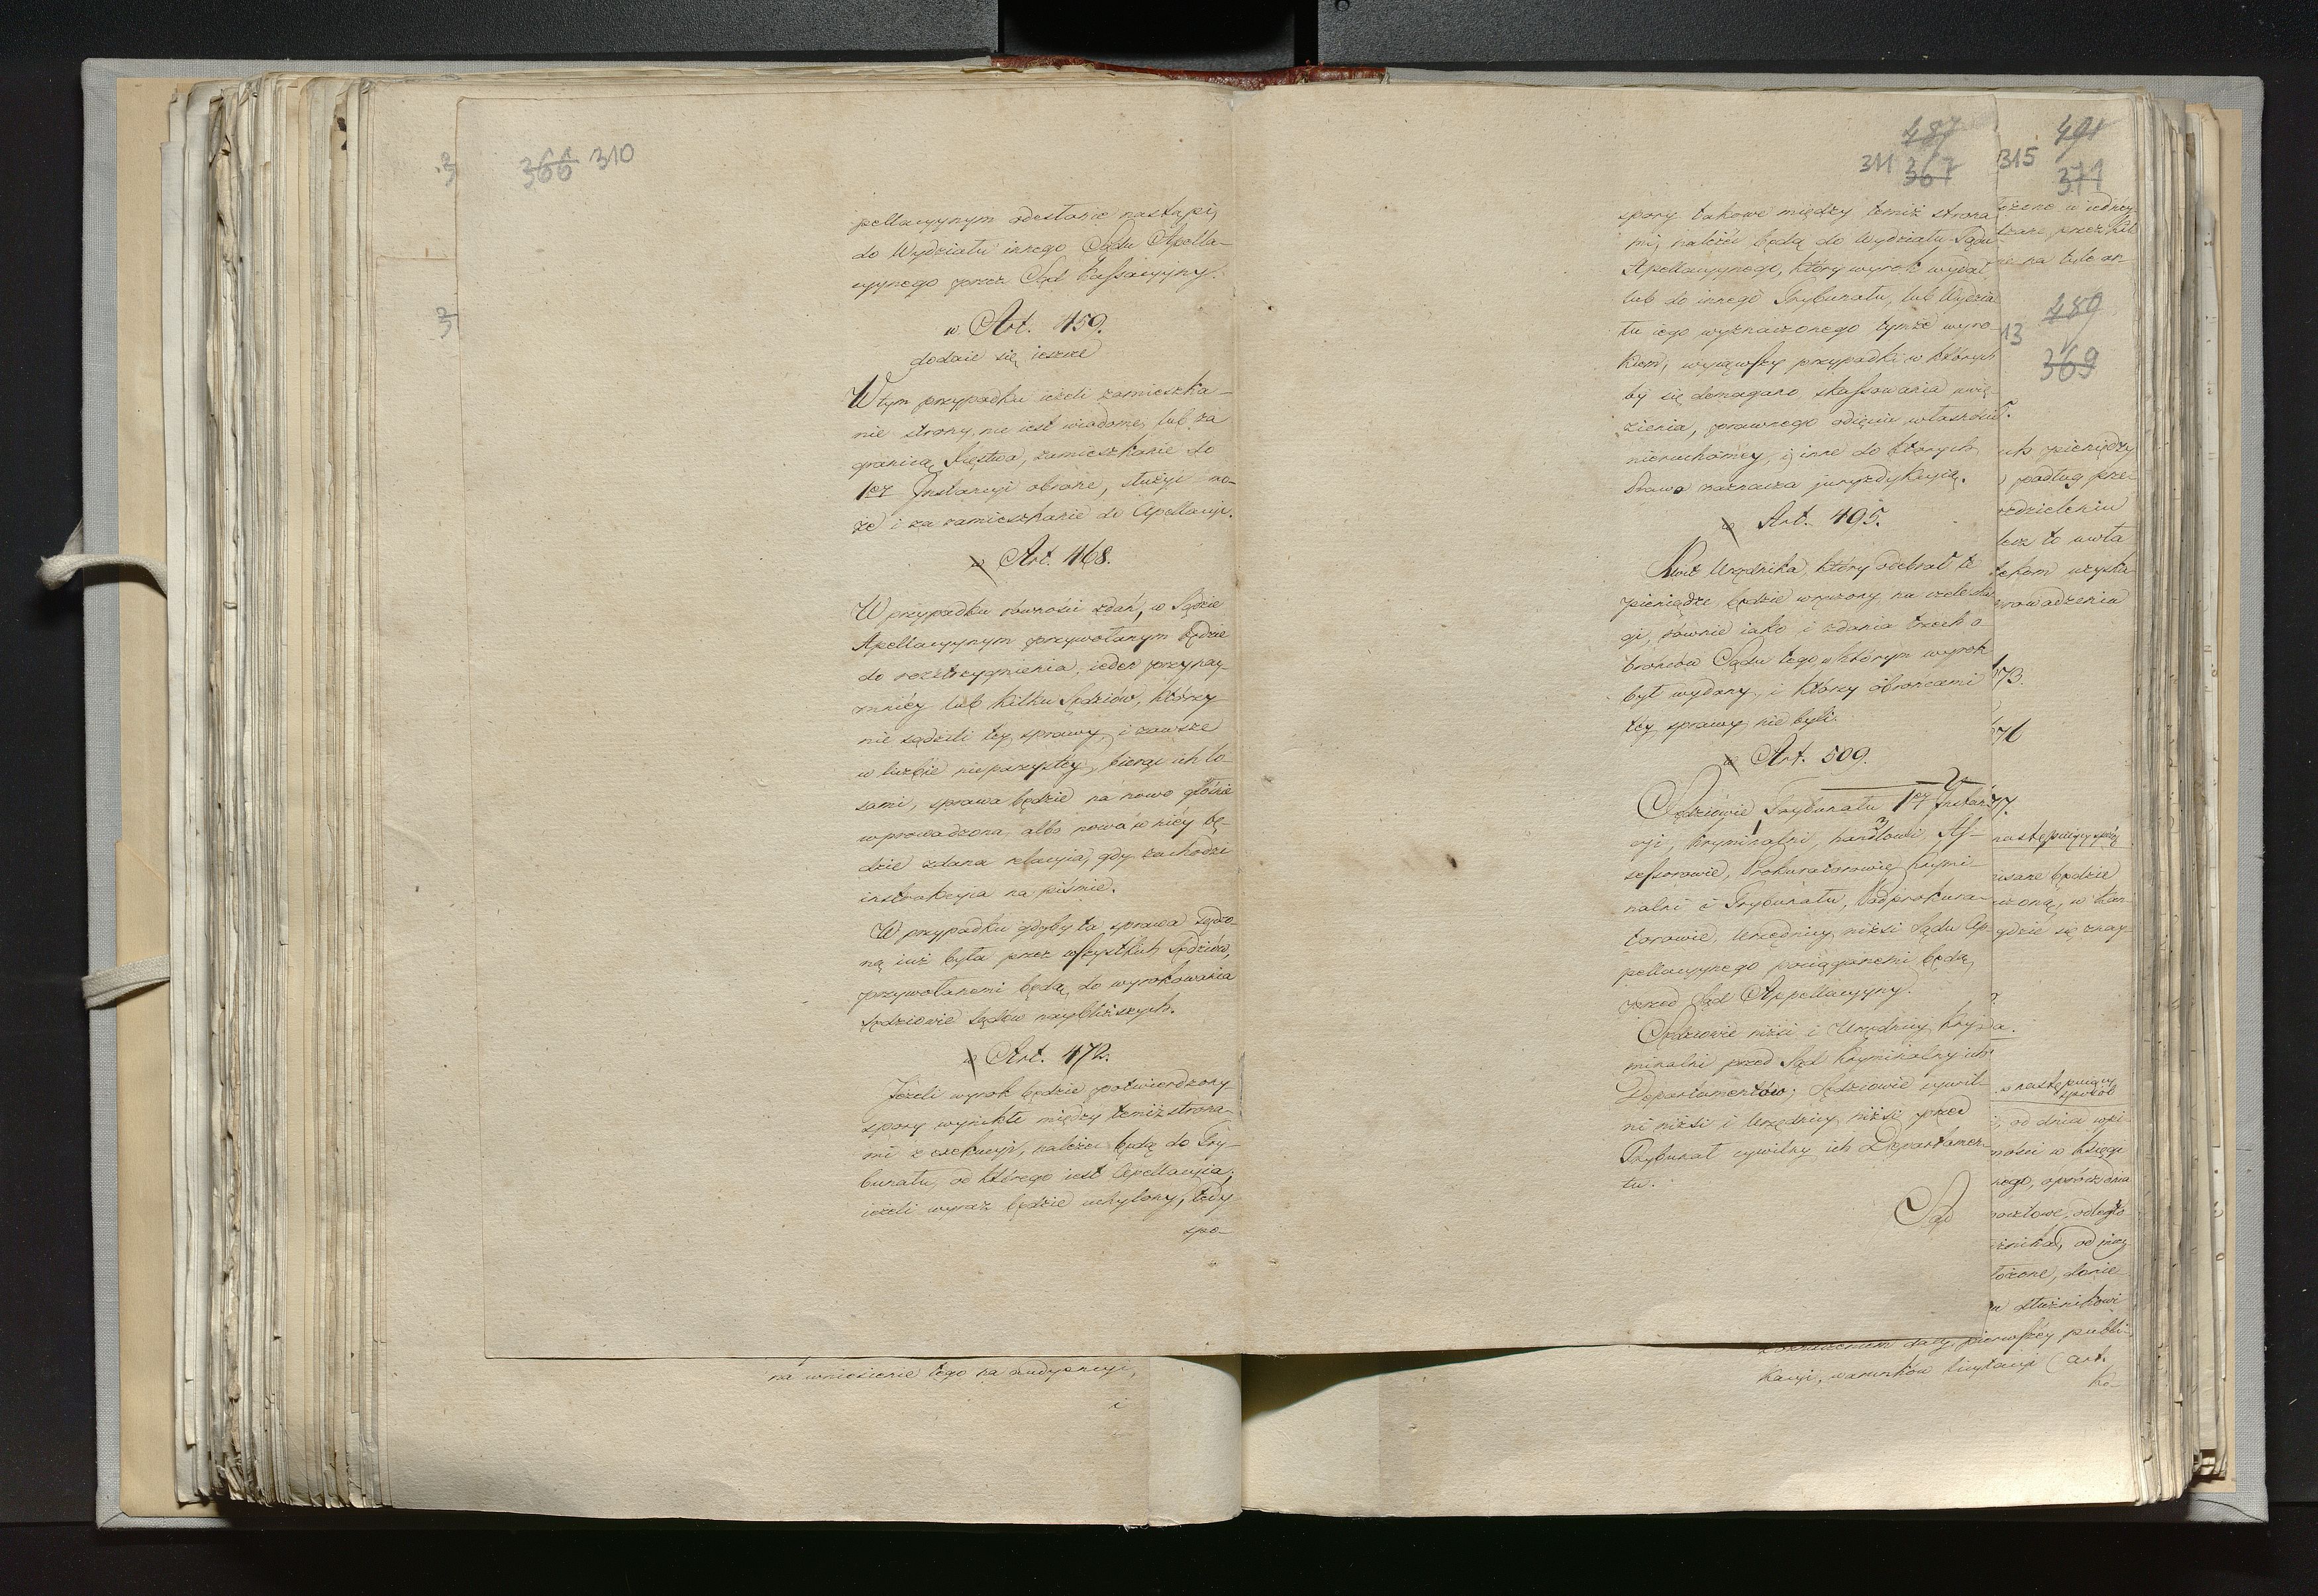 366 310
pellacyynym odesłanie nastąpi,
do Wydziału innego Sądu Apella-
cyynego przez Sąd Kassacyyny.
w Art. 459.
dodaie się ieszcze
W tym przypadku ieżeli zamieszka-
nie strony, nie iest wiadome, lub za
granicą Xięstwa, zamieszkanie do
1ey Instancyi obrane, służyć mo-
że i za zamieszkanie do Apellacyi.
w Art. 468.
W przypadku równości zdań, w Sądzie
Apellacyynym przywołanym będzie
do rozstrzygnienia, ieden przynay-
mniey lub kilku Sędziów, którzy
nie sądzili tey sprawy, i zawsze
w liczbie nieparzystey, biorąc ich lo-
sami, sprawa będzie na nowo głośnie
wprowadzona, albo nowa w niey bę-
dzie zdana relacyia, gdy zachodzi
instrukcyia na piśmie.
W przypadku gdyby ta sprawa sądzo-
ną iuż była przez wszystkich Sędziów,
przywołanemi będą do wyrokowania
Sędziowie Sądów naybliższych.
w Art. 472.
Jeżeli wyrok będzie potwierdzony
spory wynikłe między temiż strona-
mi z exekucyi, należeć będą do Try-
bunału, od którego iest Apellacyia;
ieżeli wyrok będzie uchylony, tedy
spo-
na wniesienie tego na audyencyi,
i
487
311 367
spory takowe między temiż strona-
mi, należeć będą do Wydziału Sądu
Apellacyynego, który wyrok wydał
lub do innego Trybunału, lub Wydzia-
łu iego wyznaczonego tymże wyro-
kiem, wyiąwszy przypadki w których
by się domagano skassowania uwię-
zienia, prawnego odięcia własności
nieruchomey, i inne do których
Prawo naznacza juryzdykcyią.
w Art. 495.
Kwit Urzędnika który odebrał te
pieniądze, będzie wręczony na czele skar-
gi, równie iako i zdania trzech o-
brońców Sądu tego w którym wyrok
był wydany, i którzy obrońcami
tey sprawy nie byli.
w Art. 509.
Sędziowie Trybunału 1ey Instan-
cyi, Kryminalni, handlowi, As-
sessorowie, Prokuratorowie Krymi-
nalni i Trybunału, Podprokura-
torowie, Urzędnicy niżsi Sądu Ap-
pellacyynego pociąganemi będą
przed Sąd Appellacyyny.
Sędziowie niżsi i Urzędnicy Kry-
minalni przed Sąd Kryminalny ich
Departamentów; Sędziowie cywil-
ni niżsi i Urzędnicy niżsi przed
Trybunał cywilny ich Departamen-
tu.
Sąd
315 491
371
na tyle
13 489
369
pieniędzy
podług prze-
lecz to
73.
76
77.
następuiący
będzie
gdzie się znay
następuiący
sposób
od dnia
w Księgi
nego,
od
pierwszey publi-
kacyi, warunków licytacyi (art.
ko-